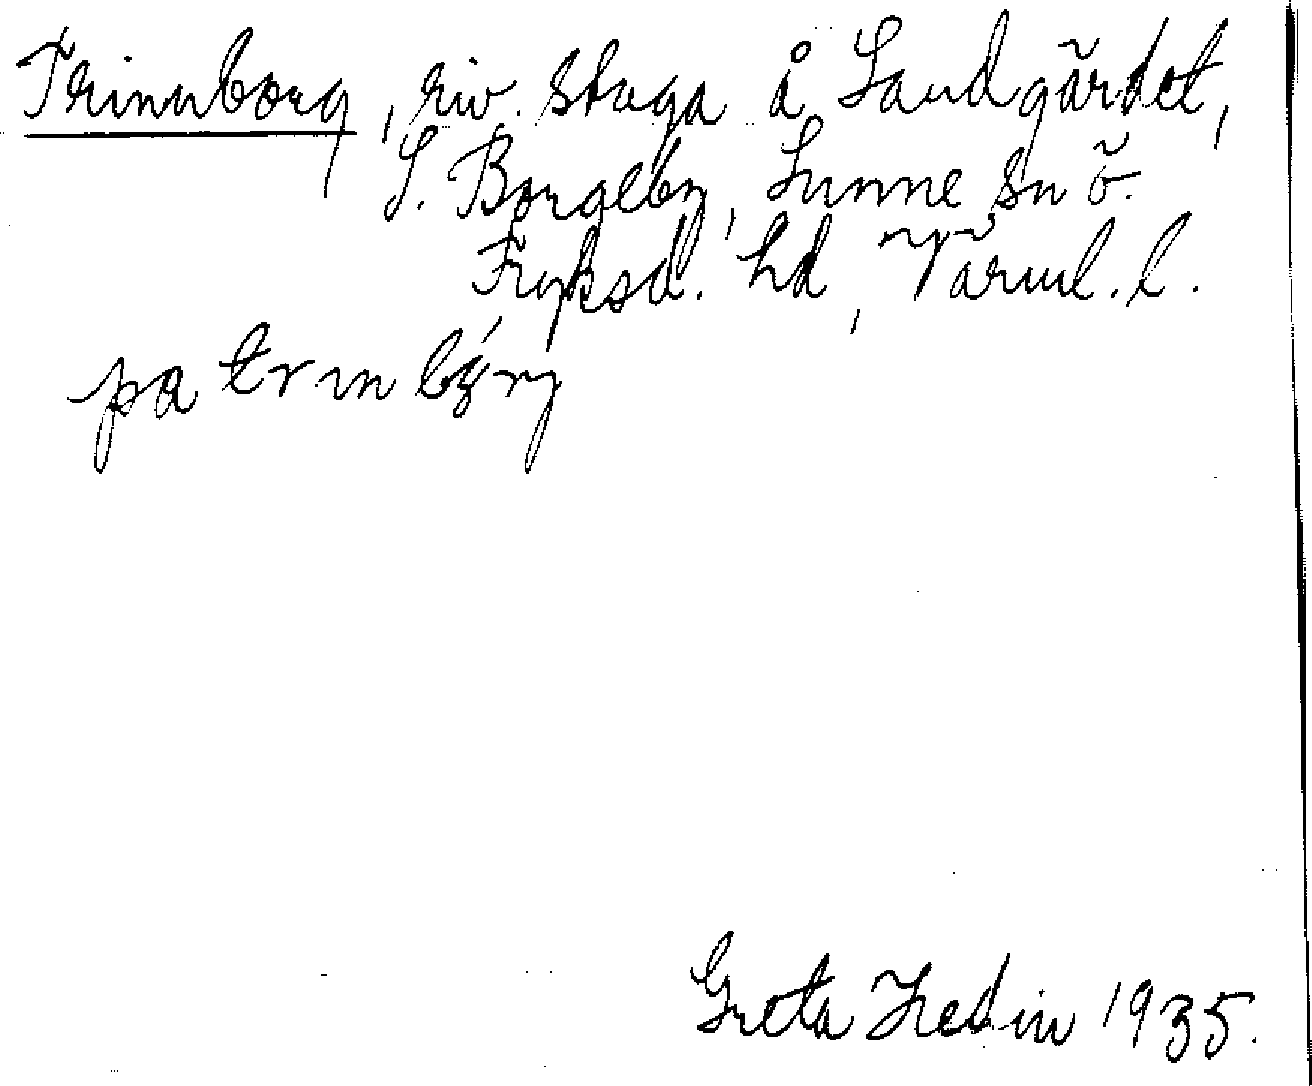 Trinnborg, riv. stuga å Sandgärdet,
S. Borgeby, Sunne sn ö.
Fryksd. hd, Värml. l.
pa trinbýrj
Greta Hedin 1935.